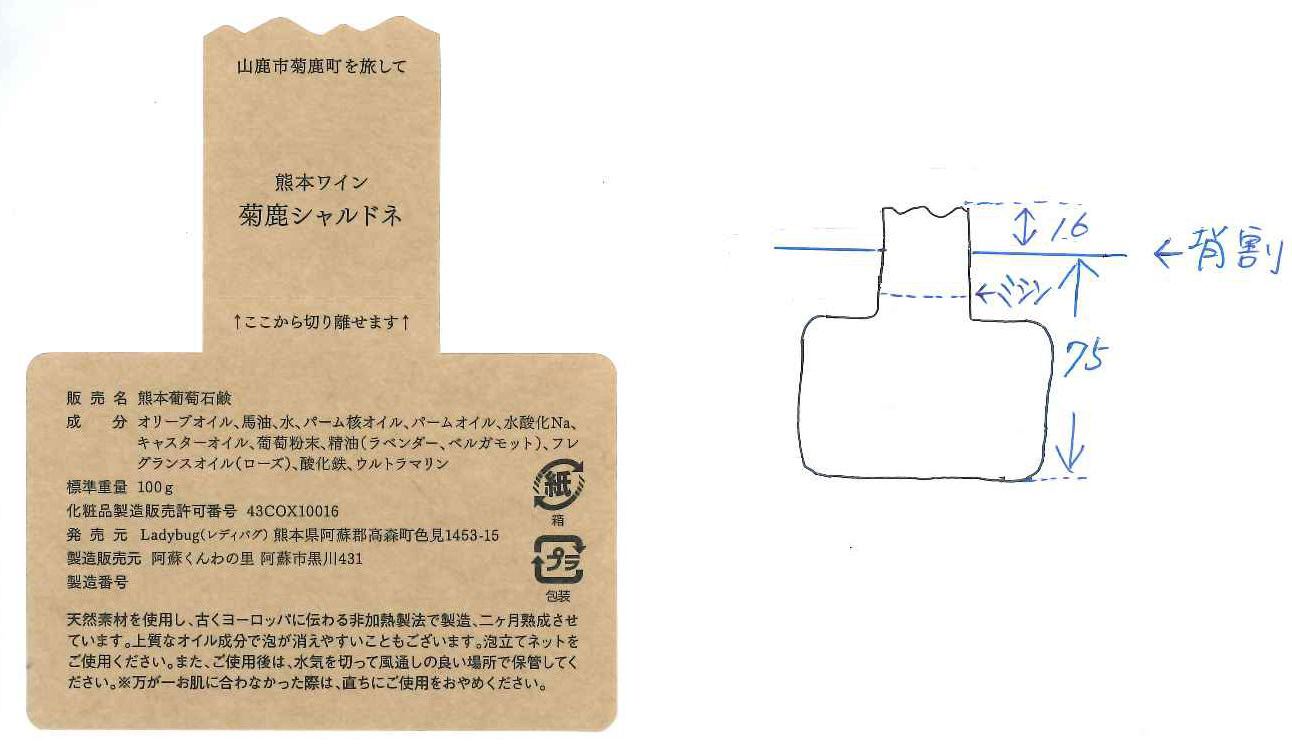 山鹿市菊鹿町を旅して
熊本ワイン
菊鹿シャルドネ
↑ここから切り離せます↑
販売名 熊本葡萄石鹸
成分 オリーブオイル、馬油、水、パーム核オイル、パームオイル、水酸化Na、
キャスターオイル、葡萄粉末、精油(ラベンダー、ベルガモット)、フレ
グランスオイル(ローズ)、酸化鉄、ウルトラマリン
標準重量 100g
化粧品製造販売許可番号 43COX10016
発売元 Ladybug(レディバグ) 熊本県阿蘇郡高森町色見1453-15
製造販売元 阿蘇くんわの里 阿蘇市黒川431
製造番号
紙
箱
プラ
包装
天然素材を使用し、古くヨーロッパに伝わる非加熱製法で製造、二ヶ月熟成させ
ています。上質なオイル成分で泡が消えやすいこともございます。泡立てネットを
ご使用ください。また、ご使用後は、水気を切って風通しの良い場所で保管してく
ださい。※万が一お肌に合わなかった際は、直ちにご使用をおやめください。
16
←背割
←ミシン
75